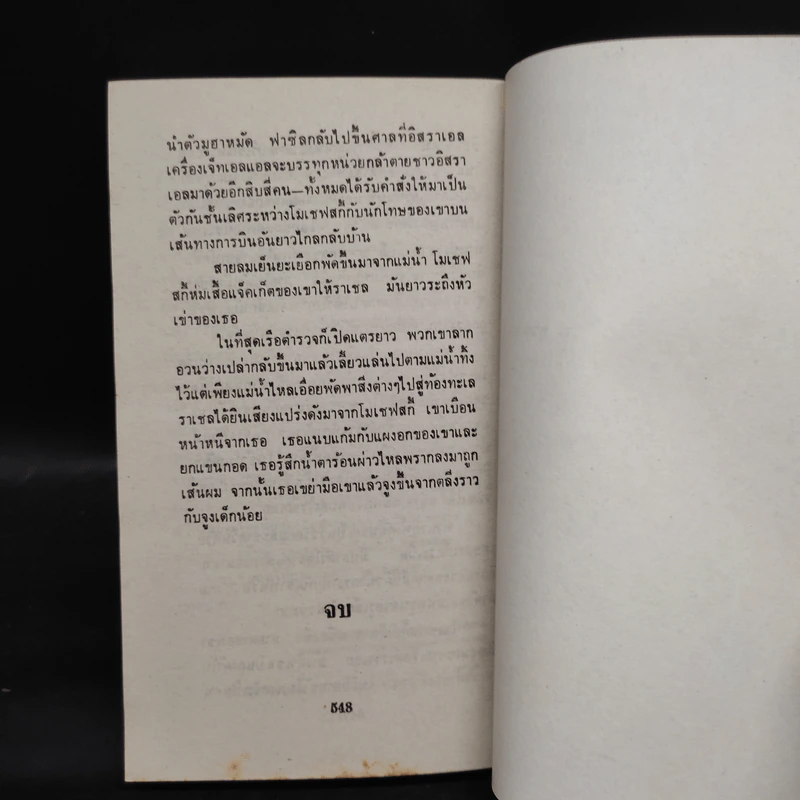 นำตัวมูฮาหมัด ฟาซิลกลับไปขึ้นศาลที่อิสราเอล
เครื่องเจ็ทเอลแอลจะบรรทุกหน่วยกล้าตายชาวอิสรา
เอลมาด้วยอีกสิบสี่คน—ทั้งหมดได้รับคำสั่งให้มาเป็น
ตัวกันชั้นเลิศระหว่างโมเชฟสกี้กับนักโทษของเขาบน
เส้นทางการบินอันยาวไกลกลับบ้าน
สายลมเย็นยะเยือกพัดขึ้นมาจากแม่น้ำ โมเชฟ
สกี้ห่มเสื้อแจ็คเก็ตของเขาให้ราเชล มันยาวระถึงหัว
เข่าของเธอ
ในที่สุดเรือตำรวจก็เปิดแตรยาว พวกเขาลาก
อวนว่างเปล่ากลับขึ้นมาแล้วเลี้ยวแล่นไปตามแม่น้ำทิ้ง
ไว้แต่เพียงแม่น้ำไหลเอื่อยพัดพาสิ่งต่างๆไปสู่ท้องทะเล
ราเชลได้ยินเสียงแปร่งดังมาจากโมเชฟสกี้ เขาเบือน
หน้าหนีจากเธอ เธอแนบแก้มกับแผงอกของเขาและ
ยกแขนกอด เธอรู้สึกน้ำตาร้อนผ่าวไหลพรากลงมาถูก
เส้นผม จากนั้นเธอเขย่ามือเขาแล้วจูงขึ้นจากตลิ่งราว
กับจูงเด็กน้อย
จบ
548